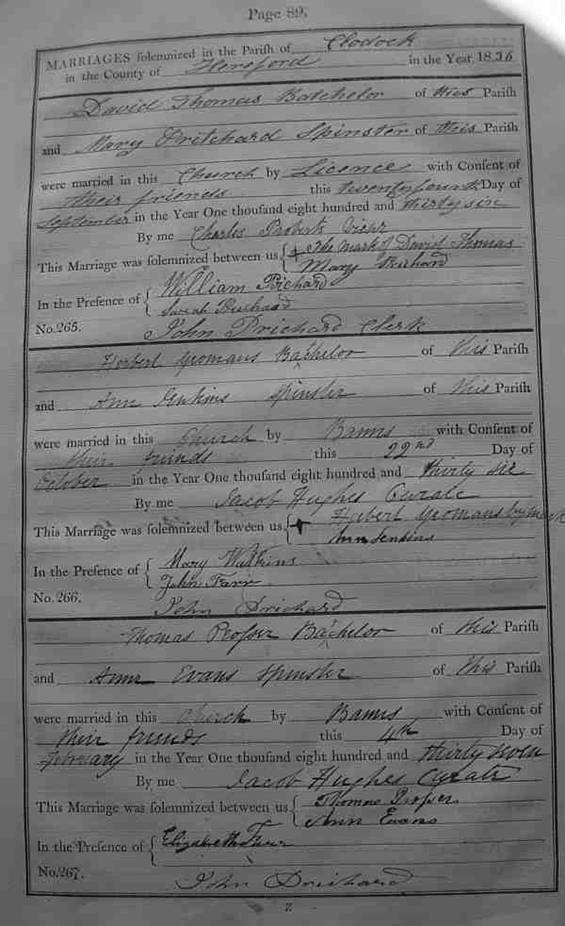 Page 89.
MARRIAGES solemnized in the Parish of Clodock
in the County of Hereford in the Year 1836
David Thomas Batchelor of this Parish
and Mary Pritchard Spinster of this Parish
were married in this Church by Licence with Consent of
their friends this twenty fourth Day of
September in the Year One thousand eight hundred and thirty six
By me Charles Probert Vicar
This Marriage was solemnized between us { + The mark of David Thomas
Mary Prichard
In the Presence of { William Prichard
Sarah Prichard
No. 265. John Prichard Clerk
Herbert Yeomans Bachelor of this Parish
and Ann Jenkins Spinster of this Parish
were married in this Church by Banns with Consent of
their friends this 22nd Day of
October in the Year One thousand eight hundred and thirty six
By me Jacob Hughes Curate
This Marriage was solemnized between us { + Herbert Yromans by mark
Ann Jenkins
In the Presence of { Mary Watkins
John Farr
No. 266. John Prichard
Thomas Prosser Bachelor of this Parish
and Anne Evans Spinster of this Parish
were married in this Church by Banns with Consent of
their friends this 4th Day of
February in the Year One thousand eight hundred and thirty seven
By me Jacob Hughes Curate
This Marriage was solemnized between us { Thomas Prosser
Ann Evans
In the Presence of { Elizabeth Farr
No. 267. John Prichard
Z